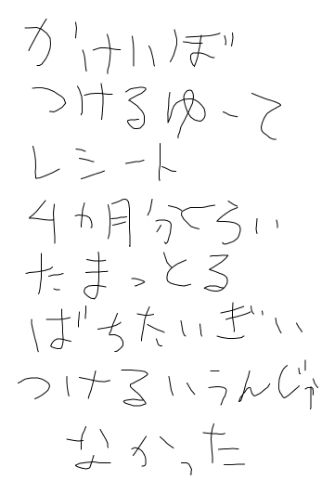 かけいぼ
つけるゆーて
レシート
4カ月分くらい
たまっとる
ばちたいぎい
つけるいうんじゃ
なかった